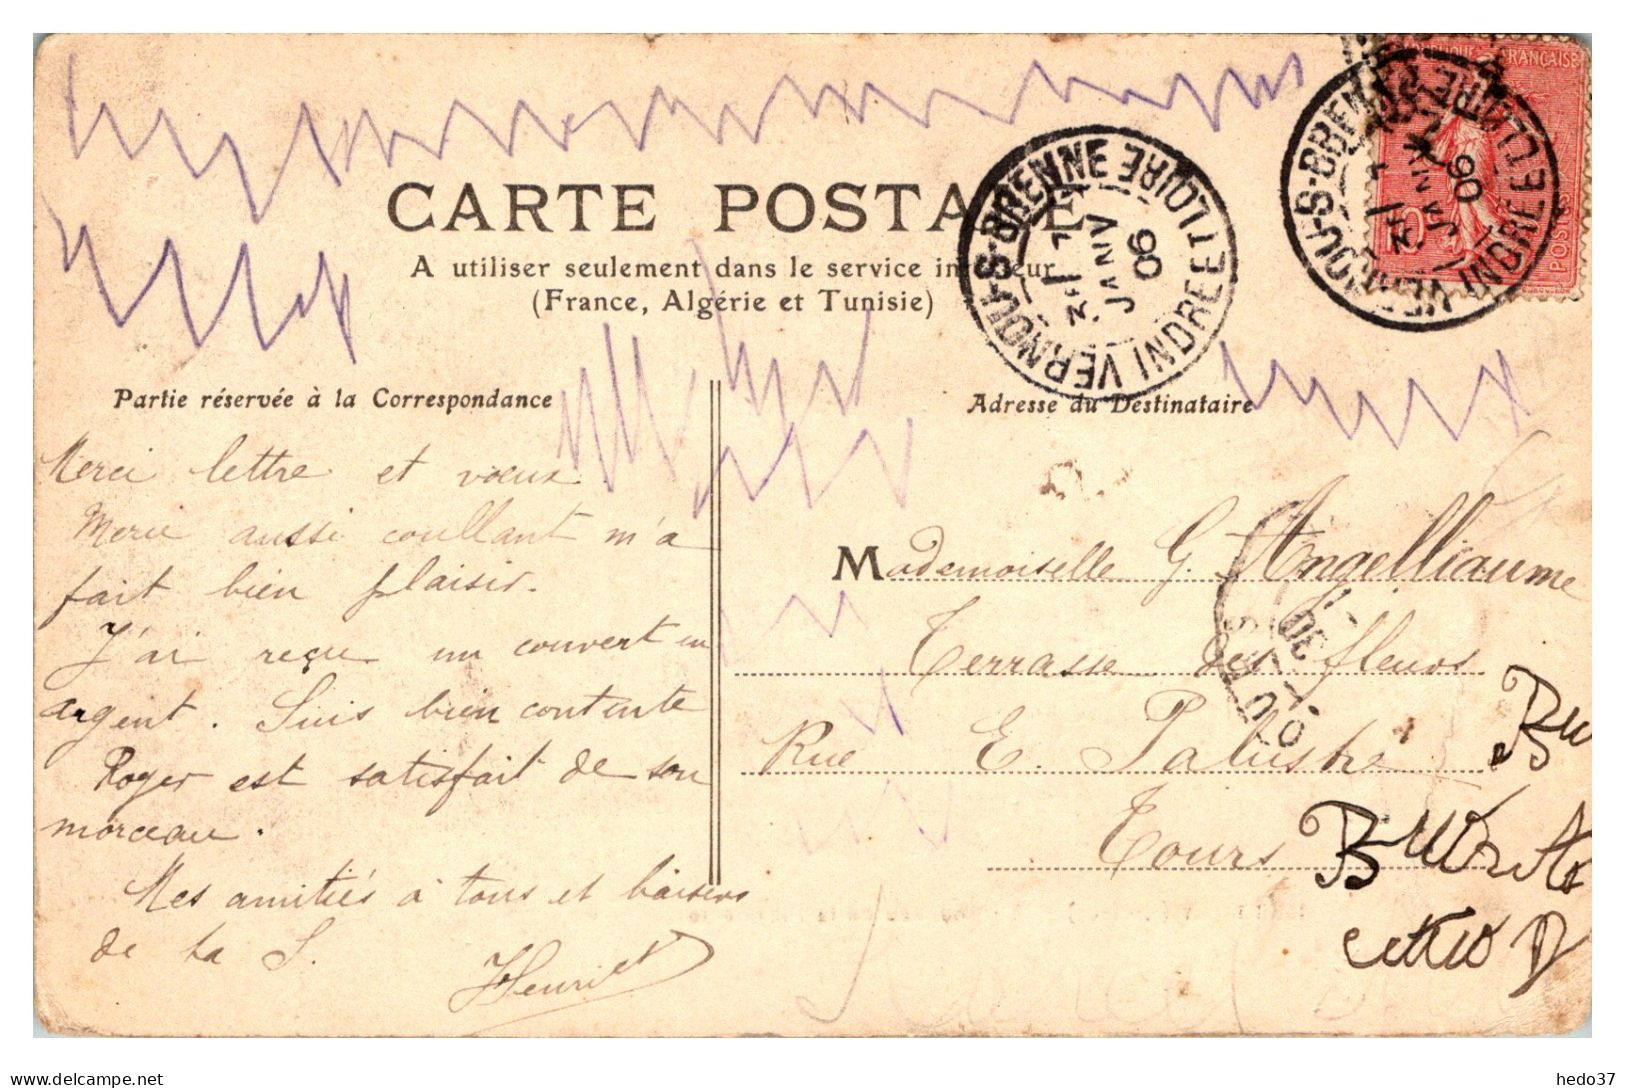 CARTE POSTALE
A utiliser seulement dans le service intérieur
(France, Algérie et Tunisie)
Partie réservée à la Correspondance
Adresse du Destinataire
RÉPUBLIQUE FRANÇAISE
10
POSTES
VERNOU-S-BRENNE INDRE ET LOIRE
JANV
06
VERNOU-S-BRENNE INDRE ET LOIRE
JANV
06
Merci lettre et voeux
Merci aussi coullant m'a
fait bien plaisir.
J'ai reçu un couvert en
argent. Suis bien contente
Roger est satisfait de son
morceau.
Mes amitiés à tous et baisers
de ta S.
Henriet
Mademoiselle G. Angelliaume
Terrasse des fleurs
Rue E. Palustre
Tours
delcampe.net
hedo37